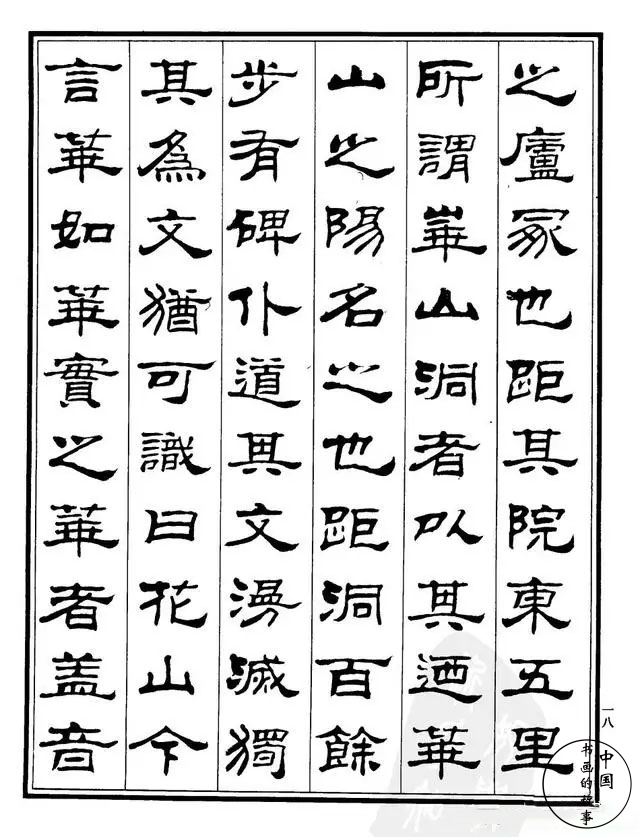 之廬冢也距其院東五里
所謂華山洞者以其迺華
山之陽名之也距洞百餘
步有碑仆道其文漫滅獨
其爲文猶可識曰花山今
言華如華實之華者盖音
一八
中国
书画的故事